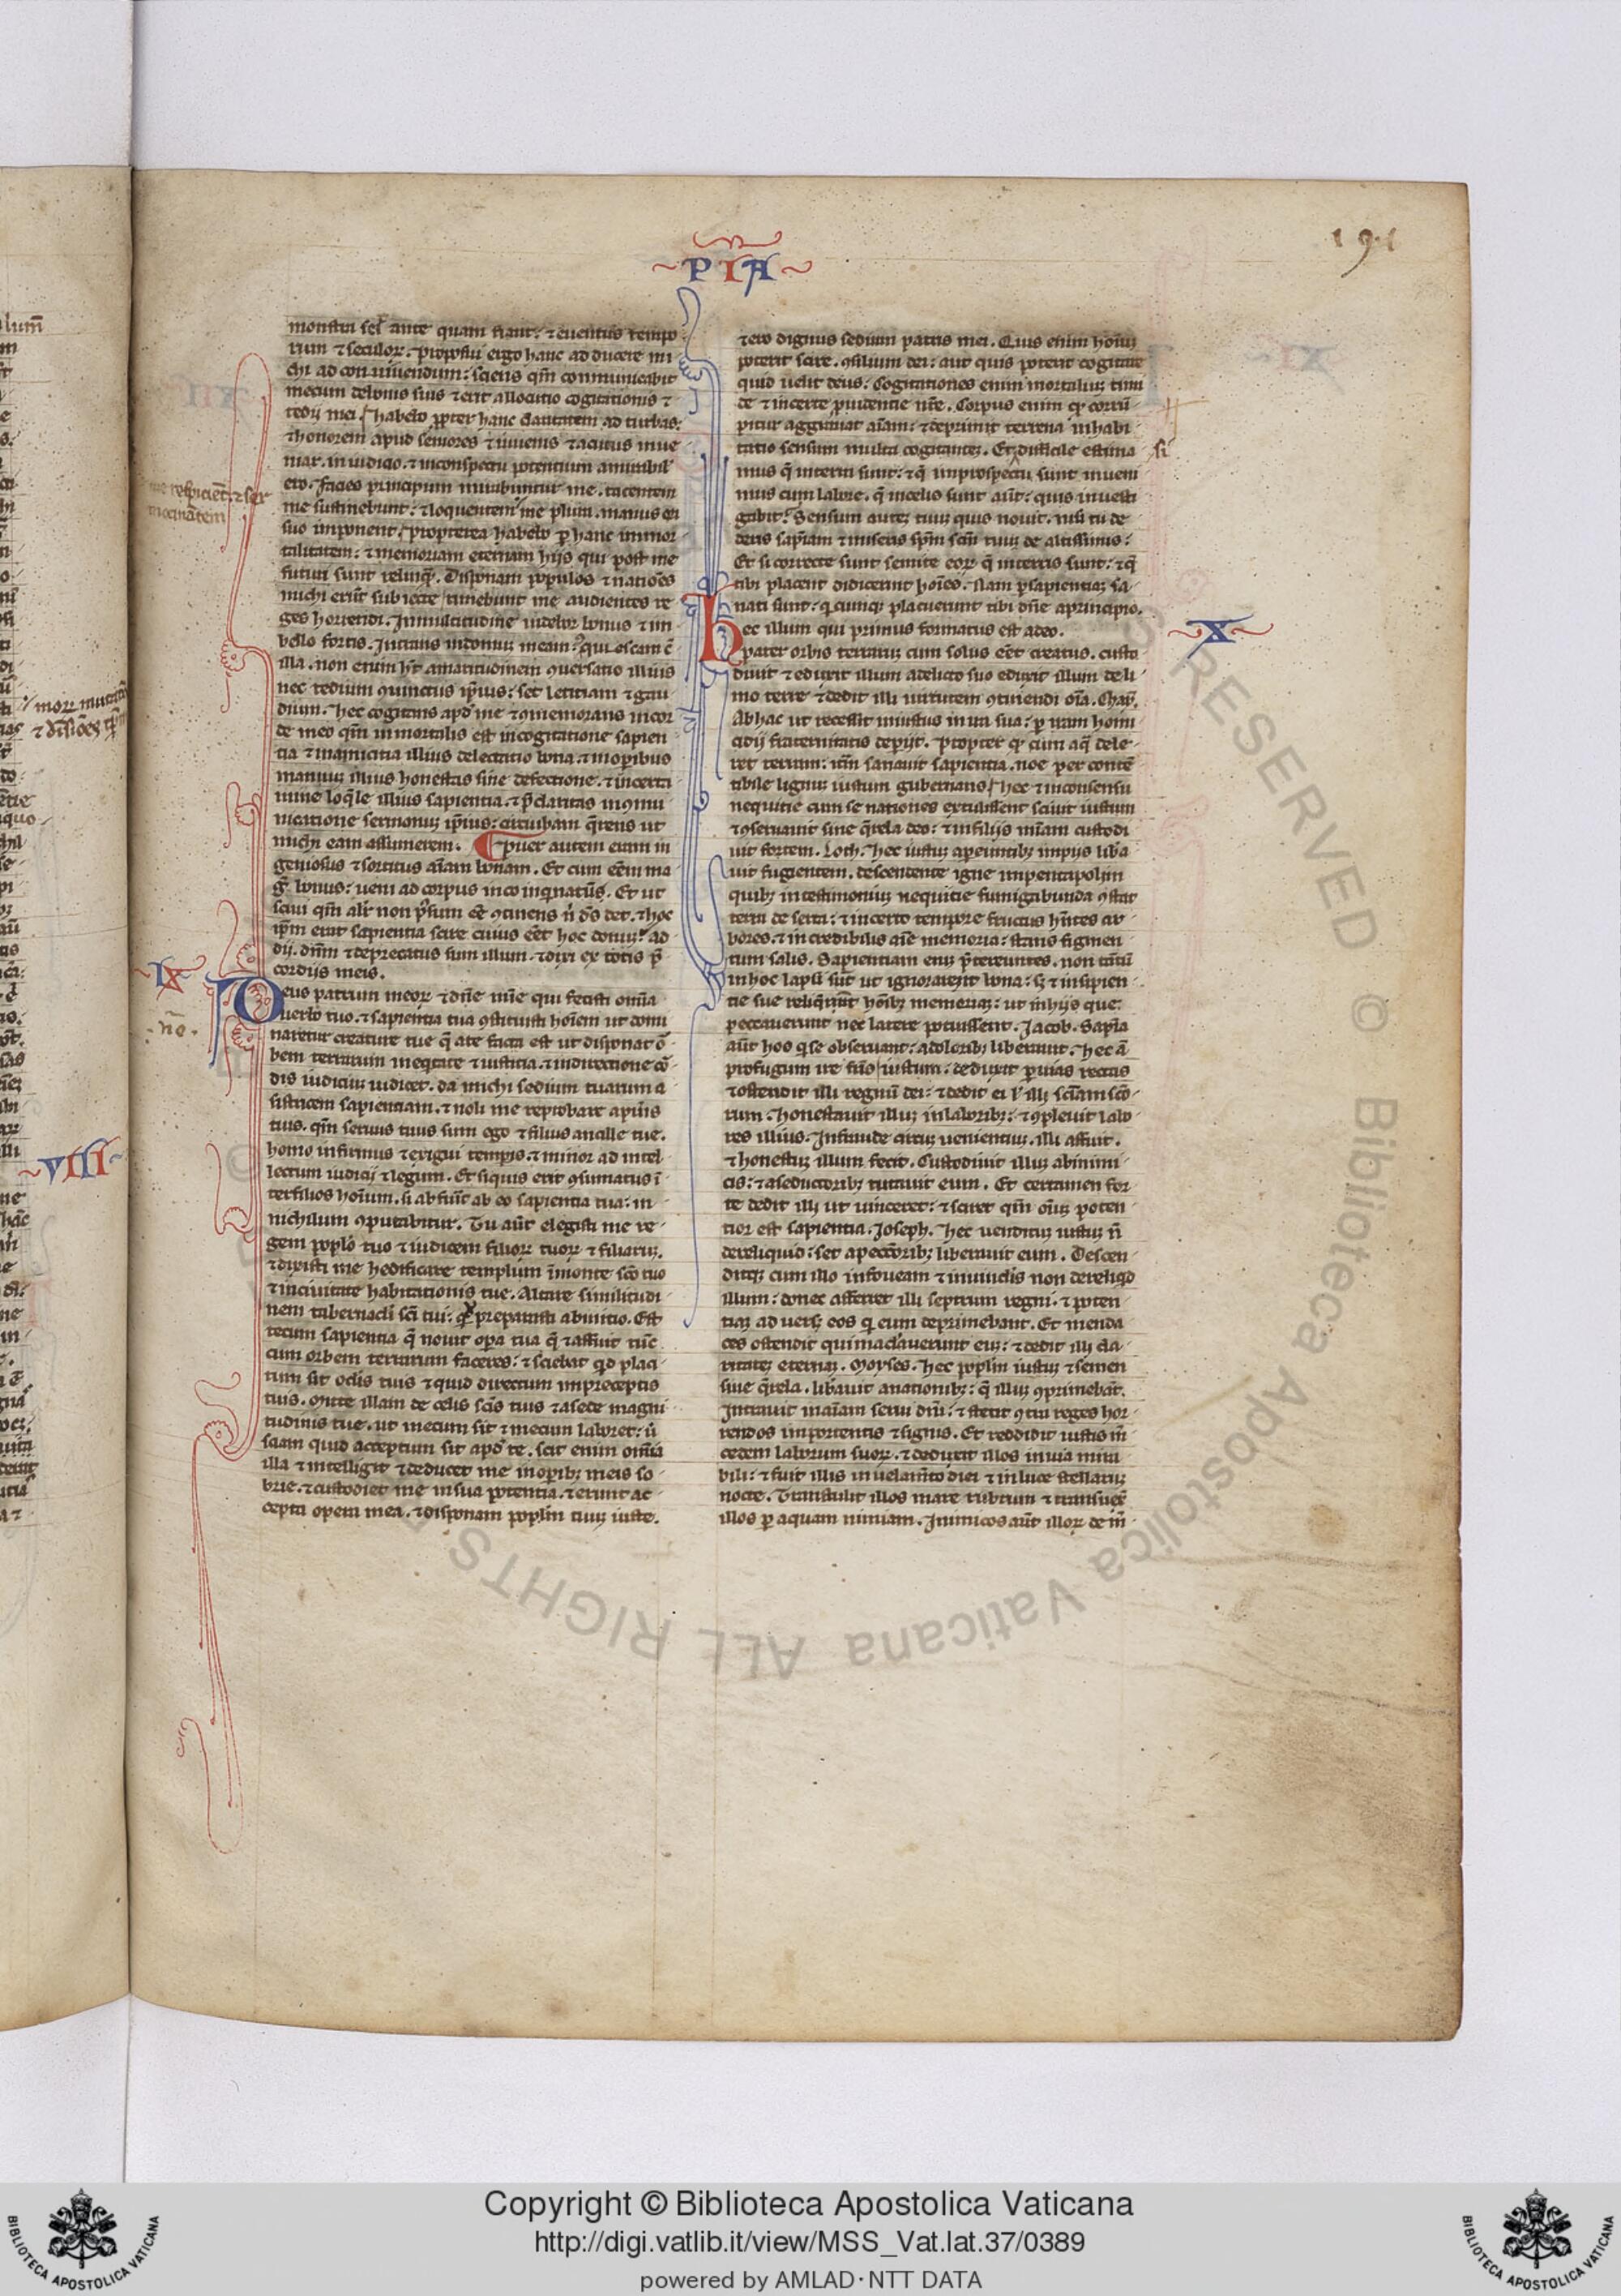 PIA
191
monstra scit ante quam fiant. ⁊ euentus tempo
rum ⁊ seculoꝝ. Proposui ergo hanc adducere mi
chi ad conuiuendum: sciens qm̄ comunicabit
mecum de bonis suis ⁊ erit allocutio cogitationis ⁊
tedij mei. habebo ꝓpter hanc claritatem ad turbas.
⁊ honorem apud seniores ⁊ iuuenis ⁊ acutus inue
niar. in iudicio. ⁊ in conspectu potentium amirabilꝭ
ero. ⁊ facies principum mirabuntur me. tacentem
me sustinebunt: ⁊ loquentem me plurim. manus ori
suo imponent. Propterea habebo ꝑ hanc immor
talitatem: ⁊ memoriam eternam hijs qui post me
futuri sunt relinqͣ. Disponam populos ⁊ natiōes
michi erūt subiecte timebunt me audientes re
ges horrendi. In multitudine uidebor bonus ⁊ in
bello fortis. Intrans in domum meam. ꝯquiescam cū
illa. non enim hꝫ amaritudinem ꝯuersatio illius
nec tedium ꝯuictus ip̄ius: set letitiam ⁊ gau
dium. hec cogitans apd̓ me ⁊ ꝯmemorans in cor
de meo qm̄ inmortalis est in cogitatione sapien
tia ⁊ in amicitia illius delectatio bona. ⁊ in oꝑibus
manuum illius honestas sine defectione. ⁊ in certa
mine loqͤle illius sapientia. ⁊ p̄claritas in ꝯmu
nicatione sermonum ip̄ius: circuibam q̄rens ut
michi eam assumerem. Puer autem eram in
geniosus ⁊ sortitus aīam bonam. Et cum eēm ma
gͥ bonus: ueni ad corpus incoinquinatum. Et ut
sciui qm̄ alr̄ non possum eē ꝯtinens n̄ ds̄ det. ⁊ hoc
ip̄m erat sapientia scire cuius eēt hoc donum. ad
dij. dn̄m ⁊ deprecatus sum illum. ⁊ dixi ex totis p̄
cordijs meis.
IX
Deus patrum meoꝝ ⁊ dn̄e mīe qui fecisti omīa
uerbo tuo. ⁊ sapientia tua ꝯstituisti hoīem ut domi
naretur creature tue q̄ a te facta est ut disponat or
bem terrarum in eqͥtate ⁊ iustitia. ⁊ in directione cor
dis iudicium iudicet. da michi sedium tuarum a
sistricem sapientiam. ⁊ noli me reprobare a pueris
tuis. qm̄ seruus tuus sum ego ⁊ filius ancille tue.
homo infirmus ⁊ exigui tempꝭis. ⁊ minor ad intel
lectum iudicij ⁊ legum. Et si quis erit ꝯsumatus in
ter filios hoīum. si ab fuīt ab eo sapientia tua: in
nichilum ꝯputabitur. Tu aūt elegisti me re
gem pop̄lo tuo ⁊ iudicem filioꝝ tuoꝝ ⁊ filiarum.
⁊ dixisti me hedificare templum in monte scō tuo
⁊ in ciuitate habitationis tue. Altare similitudi
nem tabernacli sc̄i tui: qd̓ preparasti ab initio. Est
tecum sapientia q̄ nouit opera tua q̄ ⁊ affuit tūc
cum orbem terrarum faceres: ⁊ sciebat qd̓ placi
tum sit oclis tuis ⁊ quid directum in preceptis
tuis. Mitte illam de celis scīs tuis ⁊ a sede magni
tudinis tue. ut mecum sit ⁊ mecum laboret: ut
sciam quid acceptum sit apd̓ te. scit enim omīa
illa ⁊ intelligit ⁊ deducet me in oꝑibꝫ meis so
brie. ⁊ custodiet me in sua potentia. ⁊ erunt ac
cepta opera mea. ⁊ disponam pop̄lm tuum iuste.
⁊ ero dignus sedium patris mei. Quis enim hoīum
poterit scire. ꝯsilium dei: aut quis poterit cogitare
quid uelit deus: Cogitationes enim mortalium timi
de ⁊ incerte ꝓuidentie nr̄e. Corpus enim qd̓ corrū
pitur aggrauat aīam: ⁊ deprimit terrena inhabi
tatio sensum multa cogitantem. Et difficile estima
si
mus q̄ in terra sunt: ⁊ q̄ in prospectu sunt inueni
mus cum labore. q̄ in celis sunt aūt: quis inuesti
gabit. Sensum autem tuum quis nouit. nisi tu de
deris sap̄iam ⁊ miseris sp̄m scm̄ tuum de altissimis:
Et si correcte sunt semite eoꝝ q̄ in terris sunt: ⁊ q̄
tibi placent didicerint hoīes. Nam ꝑ sapientiam sa
nati sunt: qͥcumqꝫ placuerunt tibi dn̄e a principio.
X
hec illum qui primus formatus est a deo.
pater orbis terrarum cum solus eēt creatus. custo
diuit ⁊ eduxit illum a delicto suo eduxit illum de li
mo terre ⁊ dedit illi uirtutem ꝯtinendi oīa.
Ab hac ut recessit iniustus in ira sua: ꝑ iram homi
cidij fraternitatis deperijt. Propter qd̓ cum aqͣ dele
ret terram: itm̄ sanauit sapientia. noe per contē
tibile lignum iustum gubernans. hec ⁊ in consensu
nequitie cum se nationes extulissent sciuit iustum
⁊ ꝯseruauit sine qͣrela deo: ⁊ in filijs mīam custodi
uit fortem. Loth. hec iustum a pereuntibꝫ impijs liba
uit fugientem. descendente igne in pentapolim
quibꝫ in testimonium nequitie fumigabunda ꝯstat
terra deserta: ⁊ incerto tempore fructus hn̄tes ar
bores. ⁊ incredibilis aīe memoria: stans figmen
tum salis. Sapientiam enim p̄tereuntes. non tantum
in hoc lapsi sūt ut ignorarent bona: sꝫ ⁊ insipien
tie sue reliqͥrunt hoībꝫ memoriam: ut in hijs que
peccauerunt nec latere potuissent. Jacob. Sap̄ia
aūt hos qͥ se obseruant: a doloribꝫ liberauit. hec a
profugum ire fr̄is iustum: deduxit ꝑ uias rectas
⁊ ostendit illi regnū dei: ⁊ dedit ei scīam scō
rum. honestauit illum in laboribꝫ: ⁊ ꝯpleuit labo
res illius. In fraude circumuenientium. illi affuit.
⁊ honestum illum fecit. Custodiuit illum ab inimi
cis: ⁊ a seductoribꝫ tutauit eum. Et certamen for
te dedit illi ut uinceret: ⁊ sciret qm̄ oīum poten
tior est sapientia. Joseph. hec uenditum iustum n̄
dereliquid: set a peccatoribꝫ liberauit eum. Descen
ditqꝫ cum illo in foueam ⁊ in uinclis non dereliqͥd
illum: donec afferret illi septrum regni. ⁊ poten
tiam aduersꝫ eos qͥ eum deprimebant. Et menda
ces ostendit qui maclauerunt eum: ⁊ dedit illi cla
ritatem eternam. Moyses. hec pop̄lm iustum ⁊ semen
sine qͣrela. libauit a nationibꝫ: q̄ illum ꝯprimebāt.
Intrauit in aīam serui dn̄i: ⁊ stetit ꝯtra reges hor
rendos in portentis ⁊ signis. Et reddidit iustis m̄
cedem laborum suoꝝ. ⁊ deduxit illos in uia mira
bili: ⁊ fuit illis in uelam̄to diei ⁊ in luce stellarum
nocte. Transtulit illos mare rubrum ⁊ transuex̄
illos ꝑ aquam nimiam. Inimicos aūt illoꝝ dem̄
VIII
Copyright © Biblioteca Apostolica Vaticana
http://digi.vatlib.it/view/MSS_Vat.lat.37/0389
powered by AMLAD·NTT DATA
BIBLIOTECA APOSTOLICA VATICANA
BIBLIOTECA APOSTOLICA VATICANA
ALL RIGHTS RESERVED © Biblioteca Apostolica Vaticana